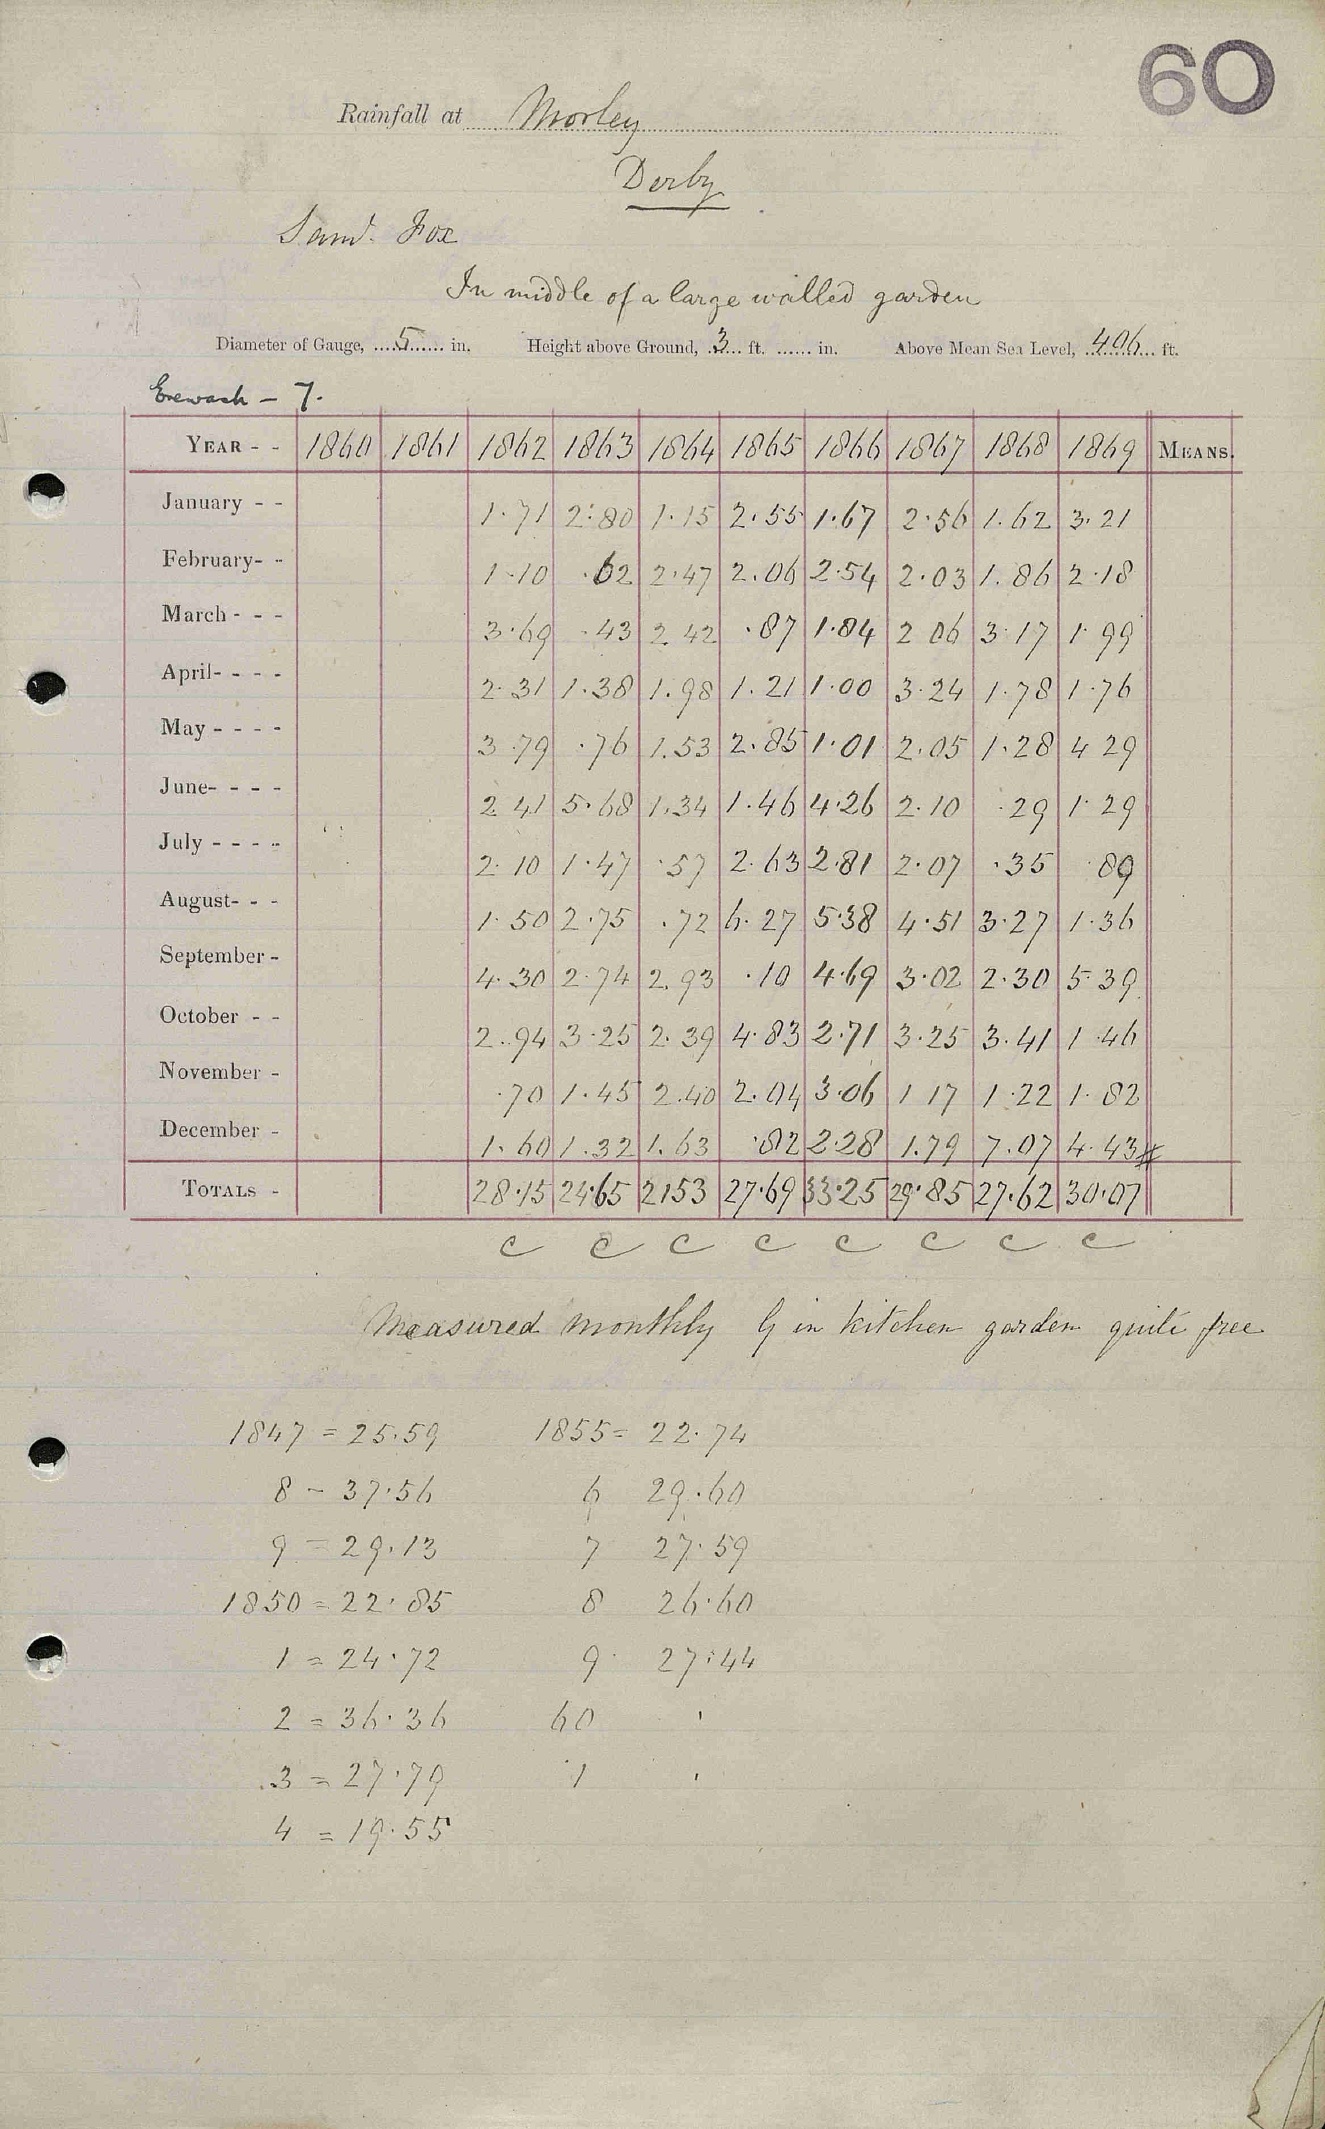 60
Rainfall at Morley
Derby
Saml. Fox
In middle of a large walled garden
Diameter of Gauge, 5 in. Height above Ground, 3 ft. in. Above Mean Sea Level, 406 ft.
Erewash - 7.
YEAR - - 1860 1861 1862 1863 1864 1865 1866 1867 1868 1869 MEANS.
January - - 1.71 2.80 1.15 2.55 1.67 2.56 1.62 3.21
February- - 1.10 .62 2.47 2.06 2.54 2.03 1.86 2.18
March - - - 3.69 .43 2.42 .87 1.84 2.06 3.17 1.99
April- - - - 2.31 1.38 1.98 1.21 1.00 3.24 1.78 1.76
May - - - - 3.79 .76 1.53 2.85 1.01 2.05 1.28 4.29
June- - - - 2.41 5.68 1.34 1.46 4.26 2.10 .29 1.29
July - - - - 2.10 1.47 .57 2.63 2.81 2.07 .35 .89
August- - - 1.50 2.75 .72 6.27 5.38 4.51 3.27 1.36
September - 4.30 2.74 2.93 .10 4.69 3.02 2.30 5.39
October - - 2.94 3.25 2.39 4.83 2.71 3.25 3.41 1.46
November - .70 1.45 2.40 2.04 3.06 1.17 1.22 1.82
December - 1.60 1.32 1.63 .82 2.28 1.79 7.07 4.43#
TOTALS - 28.15 24.65 21.53 27.69 33.25 29.85 27.62 30.07
c c c c c c c c
Measured monthly G in kitchen garden quite free
1847 = 25.59 1855 = 22.74
8 - 37.56 6 29.60
9 = 29.13 7 27.59
1850 = 22.85 8 26.60
1 = 24.72 9 27.44
2 = 36.36 60 .
3 = 27.79 1 .
4 = 19.55